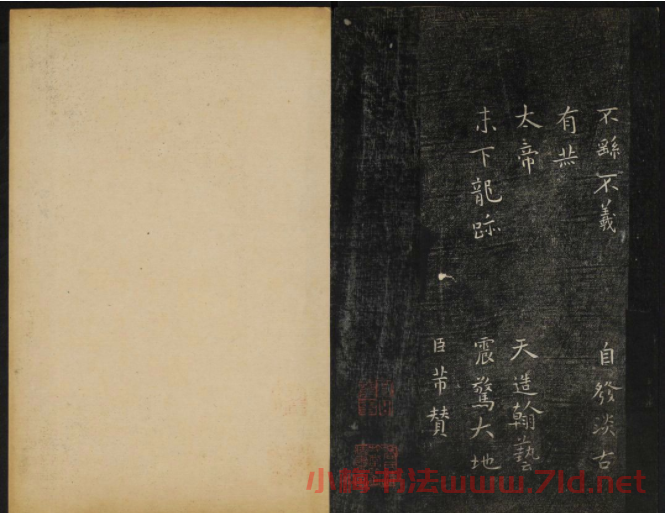 不繇不羲 自發淡古
有
太帝 天造翰藝
末下龍跡 震驚大地
臣芾贊
书法www.7ld.net